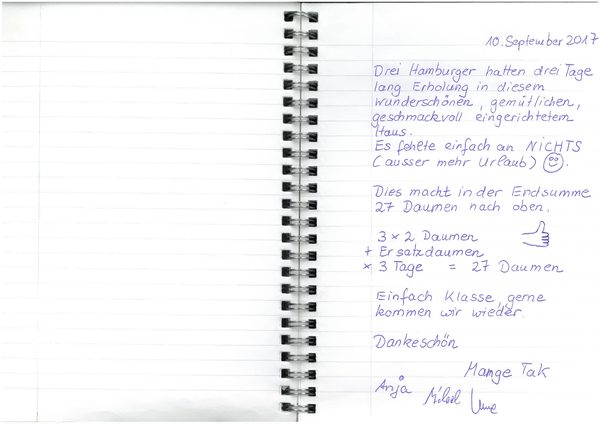 10. September 2017
Drei Hamburger hatten drei Tage
lang Erholung in diesem
wunderschönen, gemütlichen,
geschmackvoll eingerichtetem
Haus.
Es fehlte einfach an NICHTS
(ausser mehr Urlaub)
Dies macht in der Endsumme
27 Daumen nach oben.
3 × 2 Daumen
+ Ersatzdaumen
× 3 Tage = 27 Daumen
Einfach Klasse, gerne
kommen wir wieder.
Dankeschön
Mange Tak
Anja